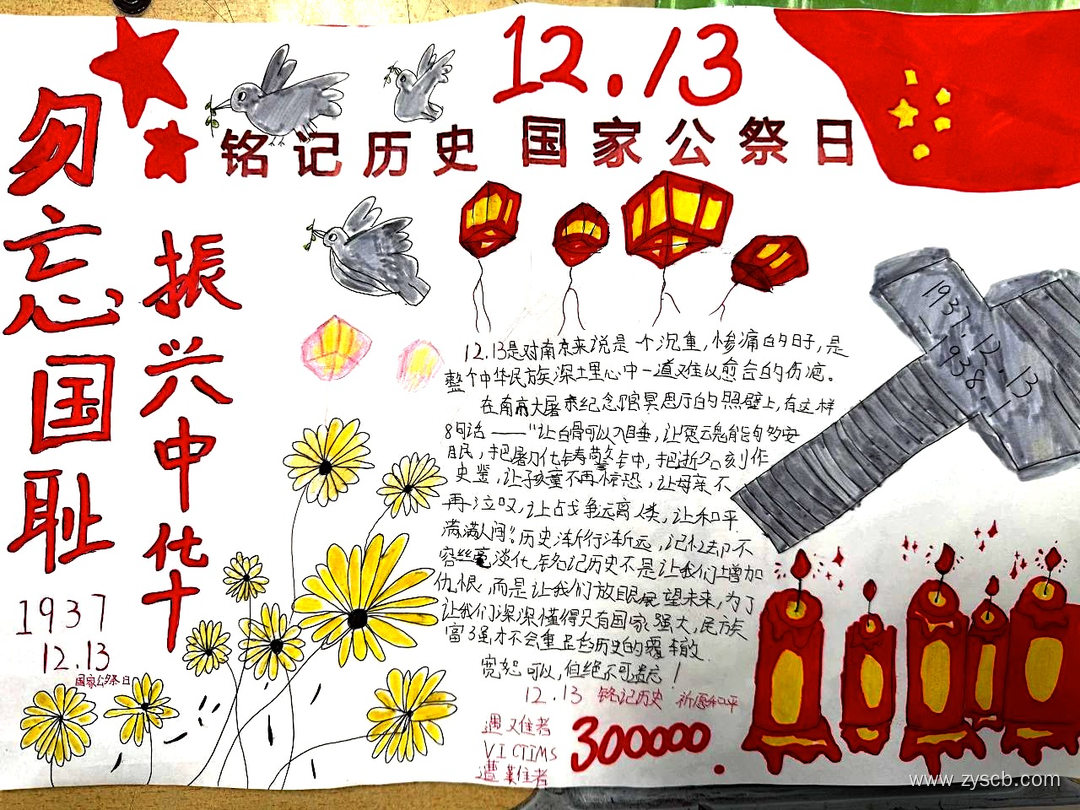 12.13
铭记历史 国家公祭日
勿忘国耻
振兴中华
1937
12.13
国家公祭日
1937.12.13
-1938.1
12.13是对南京来说是一个沉重，惨痛的日子，是
整个中华民族深土里心中一道难以愈合的伤疤。
在南京大屠杀纪念馆冥思厅的照壁上，有这样
8句话——“让白骨可以入目垂，让冤魂能够安
眠，把屠刀化铸警钟，把逝名刻作
史鉴，让孩童不再惊恐，让母亲不
再泣叹，让占戈争远离人类，让和平
满满人间”。历史渐行渐远，记忆却不
容丝毫淡化，铭记历史不是让我们增加
仇恨，而是让我们放眼展望未来，为了
让我们深深懂得只有国家强大，民族
富强才不会重蹈历史的覆辙。
宽恕可以，但绝不可遗忘！
12.13 铭记历史 祈愿和平
遇难者
VICTIMS
遭難者
300000
www.zyscb.com